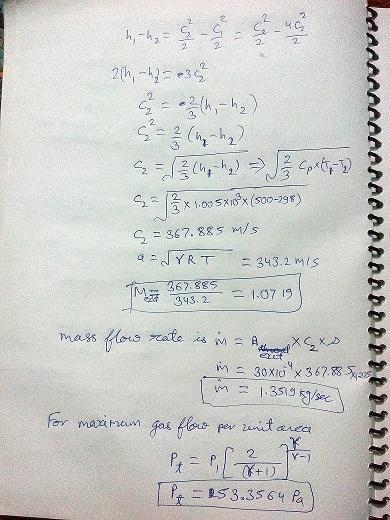 h₁-h₂ = C₂²/2 - C₁²/2 = C₂²/2 - 4C₂²/2
2(h₁-h₂) = -3C₂²
C₂² = -2/3 (h₁-h₂)
C₂² = 2/3 (h₁-h₂)
C₂ = √(2/3 (h₁-h₂)) ⇒ √(2/3 Cp×(T₁-T₂))
C₂ = √(2/3 × 1.005×10³×(500-298))
C₂ = 367.885 m/s
a = √(γRT) = 343.2 m/s
M exit = 367.885/343.2 = 1.0719
mass flow rate is ṁ = A exit × C₂ × ρ
ṁ = 30×10⁻⁴ × 367.885 × 1.225
ṁ = 1.3519 kg/sec
For maximum gas flow per unit area
Pt = P₁ [2/(γ+1)]^γ/γ-1
Pt = 253.3564 Pa